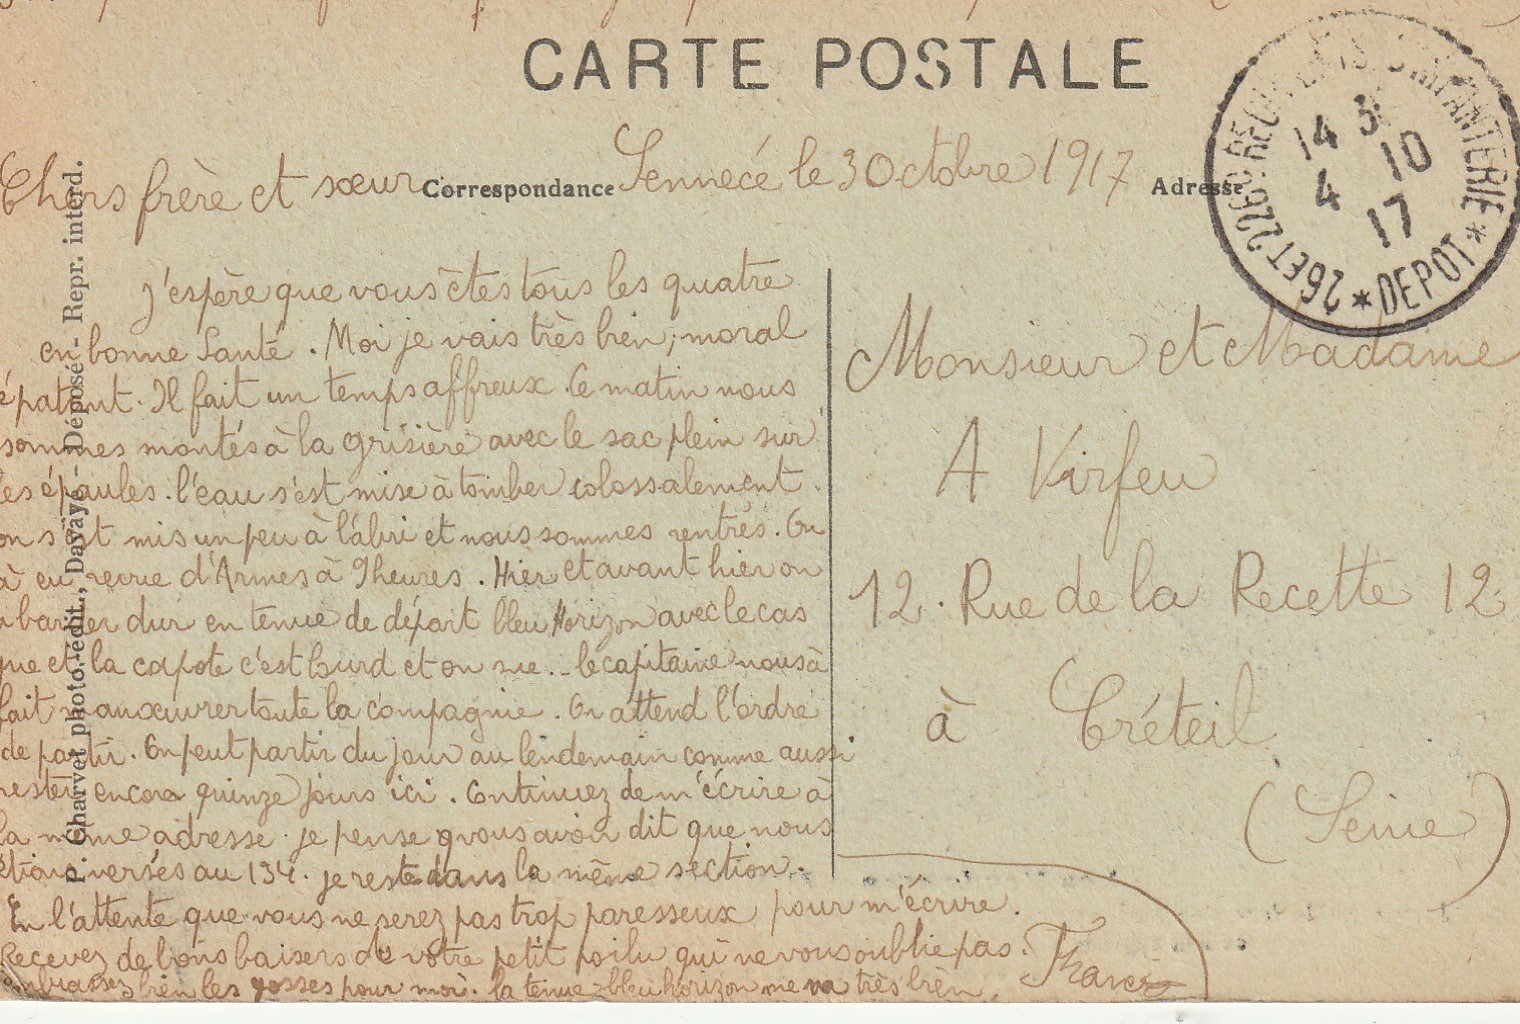 CARTE POSTALE
Correspondance
Adresse
Sennecé le 3 Octobre 1917
Chers frère et sœur
J'espère que vous êtes tous les quatre
en bonne Santé. Moi je vais très bien, moral
épatant. Il fait un temps affreux. Ce matin nous
sommes montés à la grisière avec le sac plein sur
les épaules. l'eau s'est mise à tomber colossalement.
on s'est mis un peu à l'abri et nous sommes rentrés. On
à eu revue d'Armes à 9 heures. Hier et avant hier on
barder dur en tenue de départ bleu Horizon avec le cas
que et la capote c'est lourd et on sue... le capitaine nous à
fait manœuvrer toute la compagnie. On attend l'ordre
de partir. On peut partir du jour au lendemain comme aussi
rester encore quinze jours ici. Continuez de m'écrire à
la même adresse. je pense vous avoir dit que nous
étions versés au 134. je reste dans la même section.
En l'attente que vous ne serez pas trop paresseux pour m'écrire.
Recevez de bons baisers de votre petit poilu qui ne vous oublie pas.
embrassez bien les gosses pour moi. la tenue bleu horizon me va très bien.
Francis
Monsieur et Madame
A Virfeu
12. Rue de la Recette 12
à Créteil
(Seine)
P. Charvet photo.-édit., Davayé - Déposé - Repr. interd.
26 ET 226 D'INFANTERIE * DEPOT *
14 3
10
4 17